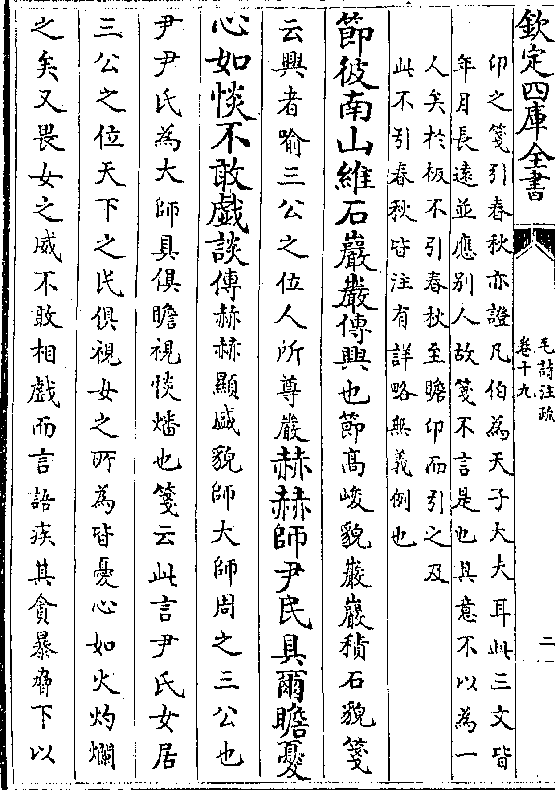 欽定四庫全書
毛詩注疏
卷十九
二
卬之箋引春秋亦證凡伯為天子大夫耳此三文皆
年月長遠並應别人故箋不言是也其意不以為一
人矣於板不引春秋至瞻卬而引之及
此不引春秋皆注有詳略無義例也
節彼南山維石巖巖傳興也節高峻貌巖巖積石貌箋
云興者喻三公之位人所尊嚴赫赫師尹民具爾瞻憂
心如惔不敢戲談傳赫赫顯盛貌師大師周之三公也
尹尹氏為大師具俱瞻視惔燔也箋云此言尹氏女居
三公之位天下之民俱視女之所為皆憂心如火灼爛
之矣又畏女之威不敢相戲而言語疾其貪暴脅下以